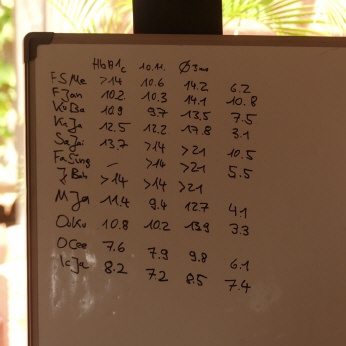 HbA1c 10.11. Ø 3
FSMe >14 10.6 14.2 6.2
FJan 10.2 10.3 14.1 10.8
KöBa 10.9 9.7 13.5 7.5
KaJa 12.5 12.2 17.8 3.1
SaJai 13.7 >14 >21 10.5
FaSing – >14 >21 5.5
JBah >14 >14 >21
MJa 11.4 9.4 12.7 4.1
OoKu 10.8 10.2 13.9 3.3
OCee 7.6 7.9 9.8 6.1
IcJa 8.2 7.2 8.5 7.4